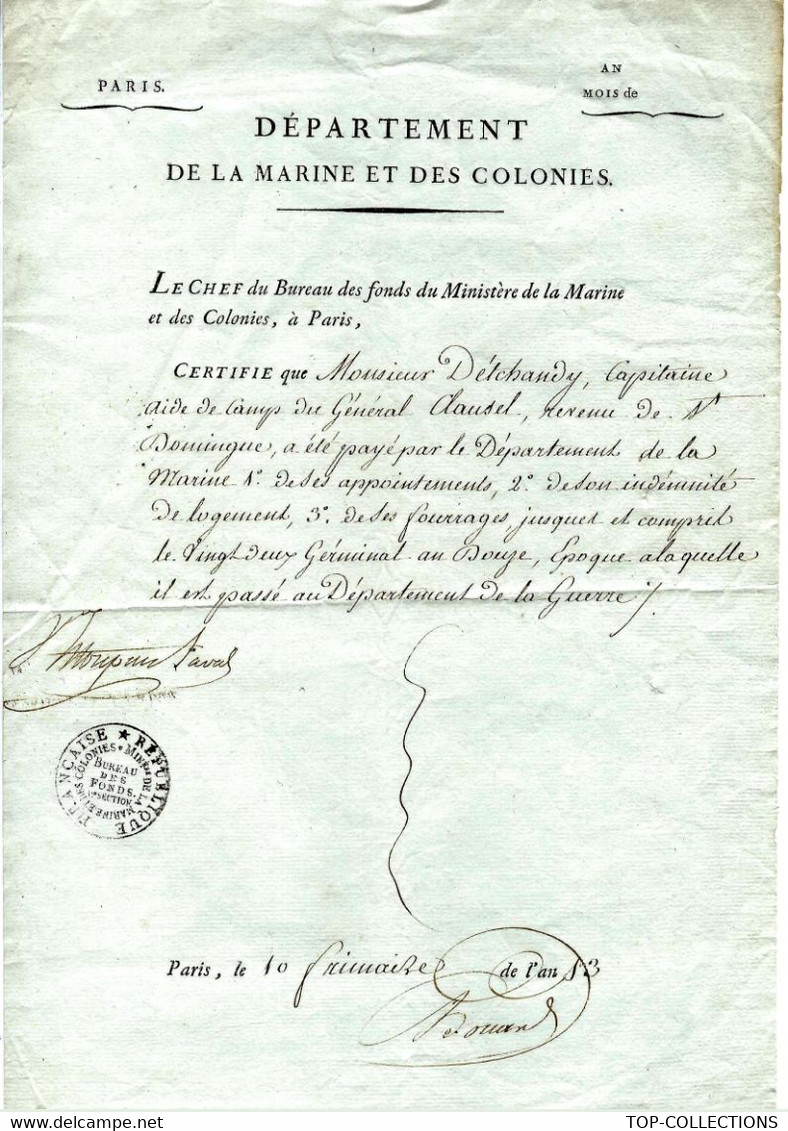 PARIS.
AN
MOIS de
DÉPARTEMENT
DE LA MARINE ET DES COLONIES.
LE CHEF du Bureau des fonds du Ministère de la Marine
et des Colonies, à Paris,
CERTIFIE que Monsieur Détchandy, Capitaine
aide de Camp du Général Clausel, revenu de St
Domingue, a été payé par le Département de la
Marine 1º. de ses appointements, 2º. de son indémnité
de logement, 3º. de ses fourrages, jusques et compris
le Vingt deux Gérminal an Douze, Epoque a laquelle
il est passé au Département de la Guerre
RÉPUBLIQUE FRANÇAISE
MINERE DE LA MARINE ET DES COLONIES
BUREAU
DES
FONDS.
1re SECTION
Paris, le 10 frimaire de l'an 13
TOP-COLLECTIONS